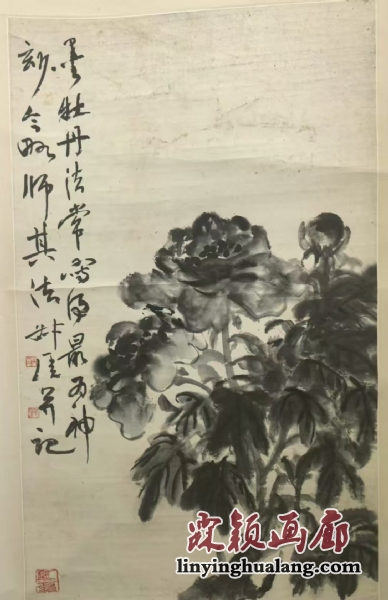 墨牡丹法常寫得最为神
妙今略师其法并记
霖颖画廊
linyinghualang.com